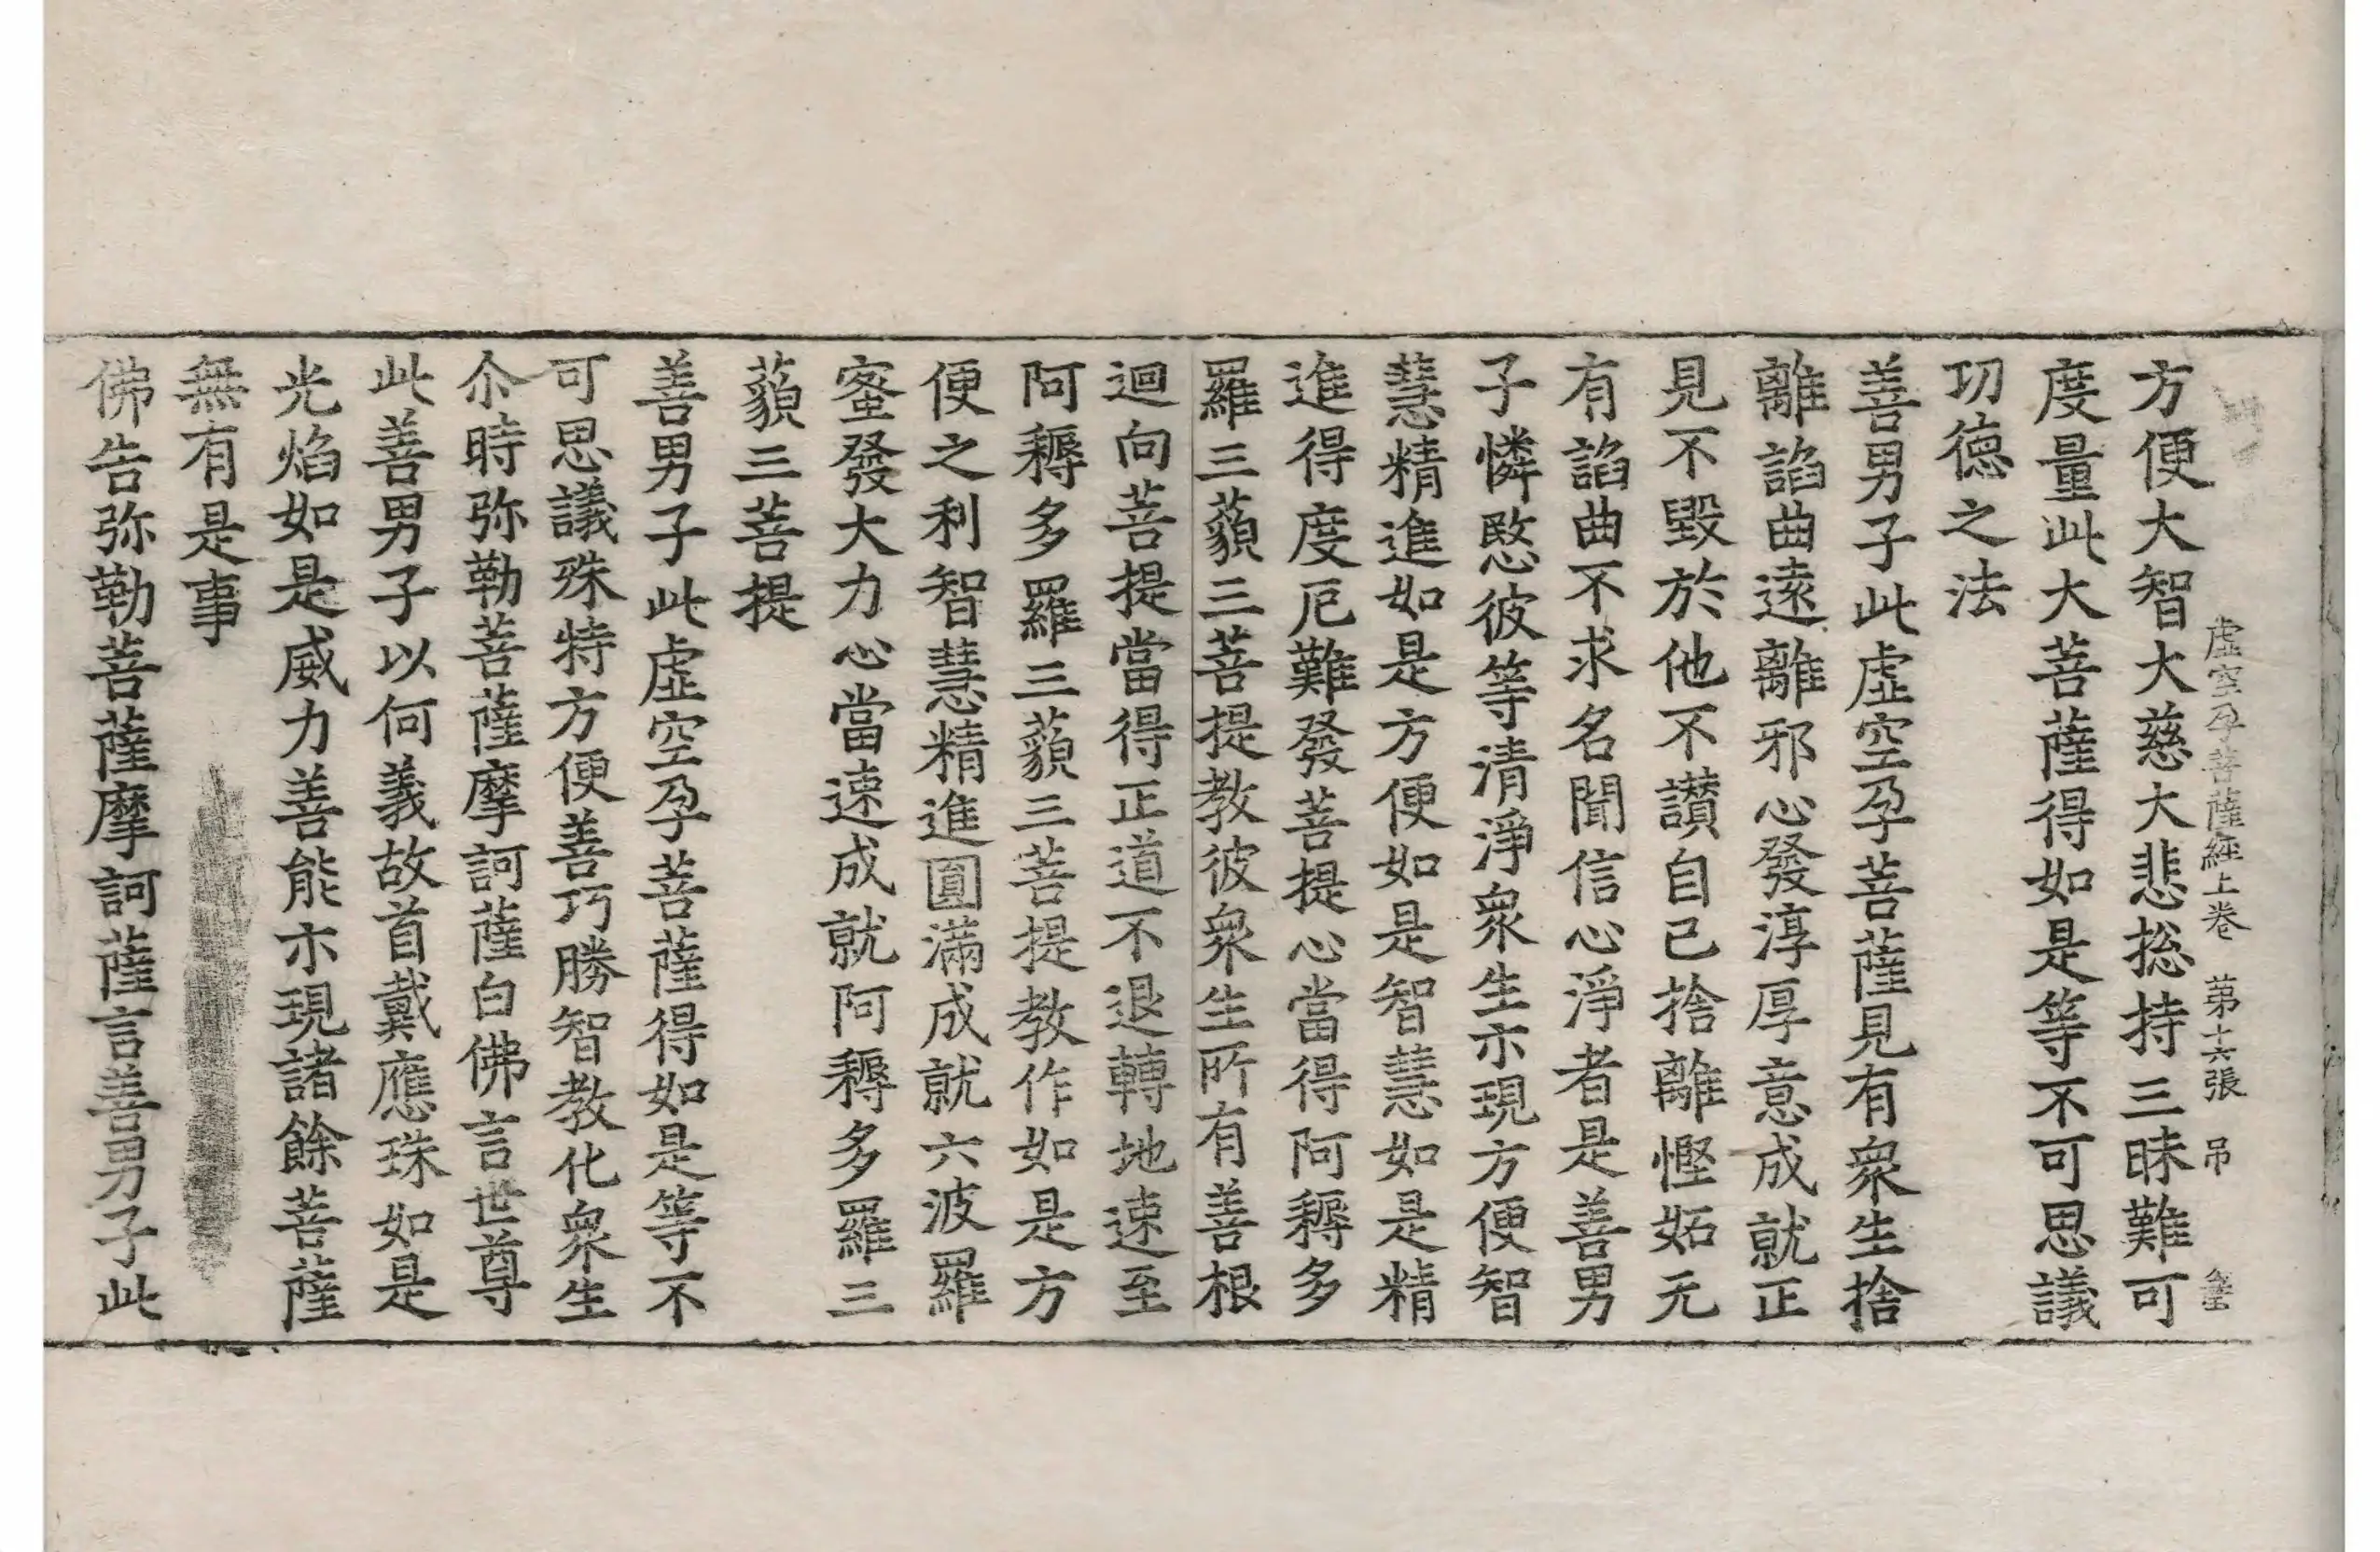 虛空孕菩薩經上卷 第十六張 吊
方便大智大慈大悲捴持三昧難可
度量此大菩薩得如是等不可思議
功德之法
善男子此虛空孕菩薩見有衆生捨
離諂曲遠離邪心發淳厚意成就正
見不毀於他不讃自己捨離慳妬无
有諂曲不求名聞信心淨者是善男
子憐愍彼等清淨衆生示現方便智
慧精進如是方便如是智慧如是精
進得度厄難發菩提心當得阿耨多
羅三藐三菩提教彼衆生所有善根
迴向菩提當得正道不退轉地速至
阿耨多羅三藐三菩提教作如是方
便之利智慧精進圓滿成就六波羅
蜜發大力心當速成就阿耨多羅三
藐三菩提
善男子此虛空孕菩薩得如是等不
可思議殊特方便善巧勝智教化衆生
尒時弥勒菩薩摩訶薩白佛言世尊
此善男子以何義故首戴應珠如是
光焰如是威力善能示現諸餘菩薩
無有是事
佛告弥勒菩薩摩訶薩言善男子此